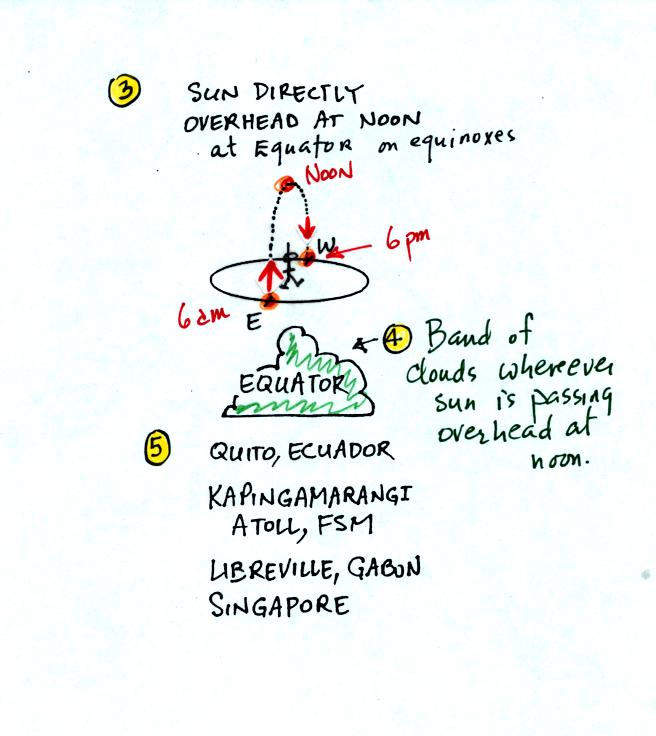 3
SUN DIRECTLY
OVERHEAD AT NOON
at EQUATOR on equinoxes
NOON
W
6 pm
6 am
E
4
Band of
clouds whereever
sun is passing
overhead at
noon.
EQUATOR
5
QUITO, ECUADOR
KAPINGAMARANGI
ATOLL, FSM
LIBREVILLE, GABON
SINGAPORE